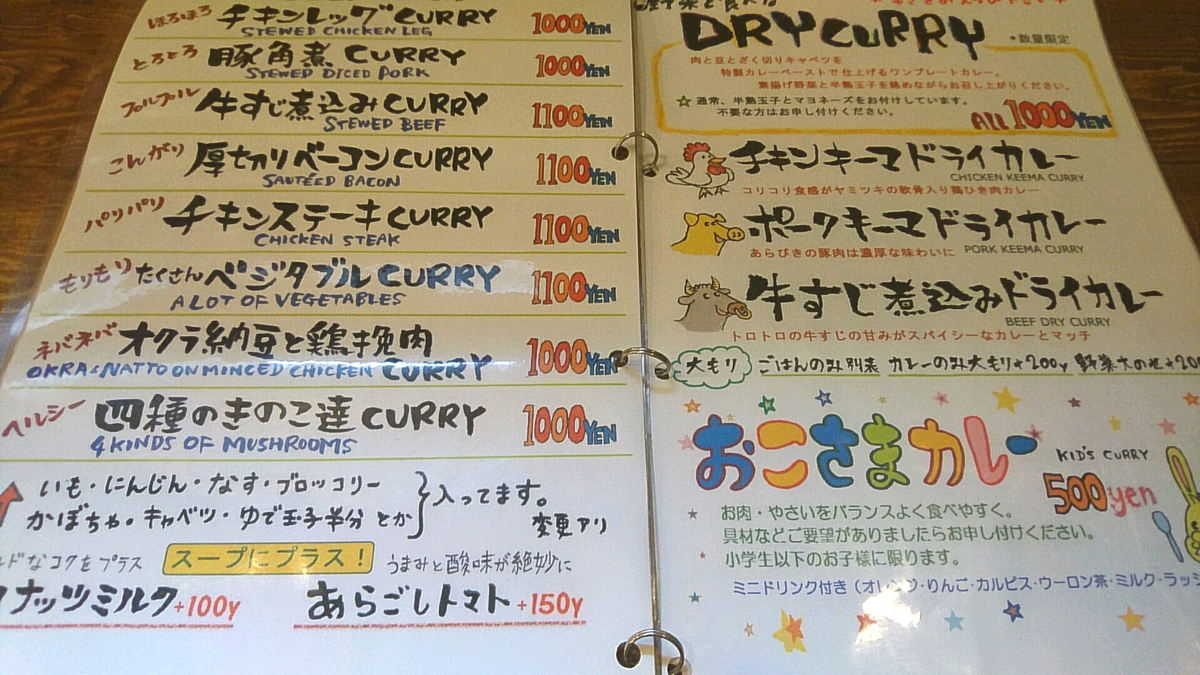 ほろほろ チキンレッグCURRY 1000YEN
STEWED CHICKEN LEG
とろとろ 豚角煮 CURRY 1000YEN
STEWED DICED PORK
プルプル 牛すじ煮込みCURRY 1100YEN
STEWED BEEF
こんがり 厚切りベーコンCURRY 1100YEN
SAUTÉED BACON
パリパリ チキンステーキCURRY 1100YEN
CHICKEN STEAK
もりもり たくさんベジタブルCURRY 1100YEN
A LOT OF VEGETABLES
ネバネバ オクラ納豆と鶏挽肉 1000YEN
OKRA & NATTO ON MINCED CHICKEN CURRY
ヘルシー 四種のきのこ達CURRY 1000YEN
4 KINDS OF MUSHROOMS
いも・にんじん・なす・ブロッコリー
かぼちゃ・キャベツ・ゆで玉子半分 とか
入ってます。
変更アリ
ドなコクをプラス スープにプラス! うまみと酸味が絶妙に
ナッツミルク+100y あらごしトマト+150y
DRY CURRY *数量限定
肉と豆とざく切りキャベツを
特製カレーペーストで仕上げるワンプレートカレー。
素揚げ野菜と半熟玉子を絡めながらお召し上がりください。
☆通常、半熟玉子とマヨネーズをお付けしています。
不要な方はお申し付けください。
ALL 1000YEN
チキンキーマドライカレー
CHICKEN KEEMA CURRY
コリコリ食感がヤミツキの軟骨入り鶏ひき肉カレー
ポークキーマドライカレー
あらびきの豚肉は濃厚な味わいに PORK KEEMA CURRY
牛すじ煮込みドライカレー
BEEF DRY CURRY
トロトロの牛すじの甘みがスパイシーなカレーとマッチ
大モリ ごはんのみ別表 カレーのみ大モリ+200y 野菜大のせ+20
おこさまカレー KID'S CURRY
500yen
お肉・やさいをバランスよく食べやすく。
具材などご要望がありましたらお申し付けください。
小学生以下のお子様に限ります。
ミニドリンク付き(オレンジ・りんご・カルピス・ウーロン茶・ミルク・ラッシ